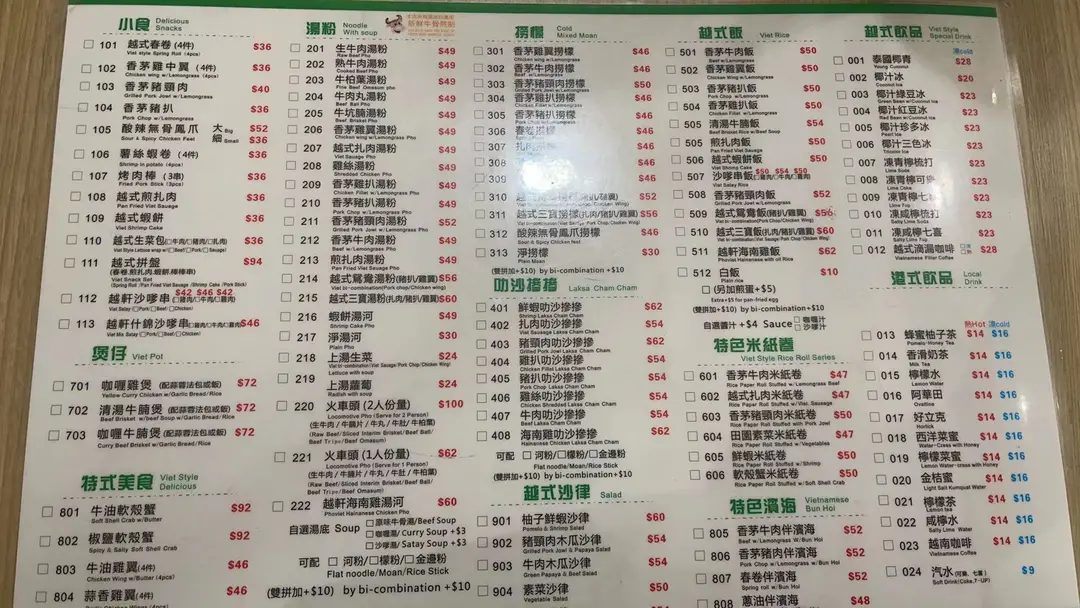 小食 Delicious Snacks
101 越式春卷 (4件) $36
Viet style Spring Roll (4pcs)
102 香茅雞中翼 (4件) $36
Chicken wing w/Lemongrass (4pcs)
103 香茅豬頸肉 $40
Grilled Pork Jowl w/Lemongrass
104 香茅豬扒 $36
Pork Chop w/Lemongrass
105 酸辣無骨鳳爪 大 Big $52
細 Small $36
Sour & Spicy Chicken Feet
106 薯絲蝦卷 (4件) $36
Shrimp in potato (4pcs)
107 烤肉棒 (3串) $36
Fried Pork Stick (3pcs)
108 越式煎扎肉 $36
Pan Fried Viet Sausage
109 越式蝦餅 $36
Viet Shrimp Cake
110 越式生菜包 (□牛肉/□豬肉/□扎肉) $36
111 越式拼盤 $94
(春卷,煎扎肉,蝦餅,棒棒串)
Viet Snack Set
(Spring Roll /Pan Fried Viet Sausage /Shrimp Cake /Pork Stick)
$42 $46 $42
112 越軒沙嗲串 (□豬肉/□牛肉/□雞肉)
Viet Satay (□Pork/□Beef/□Chicken)
113 越軒什錦沙嗲串 $46
煲仔 Viet Pot
701 咖喱雞煲 (配蒜蓉法包或飯) $72
Yellow Curry Chicken w/Garlic Bread/Rice
702 清湯牛腩煲 (配蒜蓉法包或飯) $72
Beef Brisket w/Beef Soup w/Garlic Bread/Rice
703 咖喱牛腩煲 (配蒜蓉法包或飯) $72
Curry Beef Brisket w/Garlic Bread/Rice
特式美食 Viet Style Delicious
801 牛油軟殼蟹 $92
Soft Shell Crab w/Butter
802 椒鹽軟殼蟹 $92
Spicy & Salty Soft Shell Crab
803 牛油雞翼 (4件) $46
Chicken Wing w/Butter (4pcs)
804 蒜香雞翼 (4件) $46
湯粉 Noodle With soup
新鮮牛骨熬制
201 生牛肉湯粉 $49
Raw Beef Pho
202 熟牛肉湯粉 $49
Cooked Beef Pho
203 牛柏葉湯粉 $49
Fine Beef Omasum pho
204 牛肉丸湯粉 $49
Beef Ball Pho
205 牛坑腩湯粉 $49
Beef Brisket Pho
206 香茅雞翼湯粉 $49
Chicken wing w/Lemongrass Pho
207 越式扎肉湯粉 $49
Viet Sausage Pho
208 雞絲湯粉 $49
Shredded Chicken Pho
209 香茅雞扒湯粉 $49
Chicken Fillet w/Lemongrass Pho
210 香茅豬扒湯粉 $49
Pork Chop w/Lemongrass Pho
211 香茅豬頸肉湯粉 $52
Grilled Pork Jowl w/Lemongrass Pho
212 香茅牛肉湯粉 $49
Beef w/Lemongrass Pho
213 煎扎肉湯粉 $49
Pan Fried Viet Sausage Pho
214 越式鴛鴦湯粉(豬扒/雞翼) $56
Viet bi-combination(Pork chop/Chicken wing)
215 越式三寶湯粉(扎肉/豬扒/雞翼) $60
Viet tri-combination(Viet Sausage/Pork Chop/Chicken Wing)
216 蝦餅湯河 $49
Shrimp Cake Pho
217 淨湯河 $30
Plain Pho
218 上湯生菜 $24
Lettuce with soup
219 上湯蘿蔔 $24
Radish with soup
220 火車頭 (2人份量) $100
Locomotive Pho (Serve for 2 Person)
(生牛肉 / 牛腩片 / 牛丸 / 牛肚 / 牛柏葉)
(Raw Beef/Sliced Interim Brisket/Beef Ball/
Beef Tripe/Beef Omasum)
221 火車頭 (1人份量) $62
Locomotive Pho (Serve for 1 Person)
(生牛肉 / 牛腩片 / 牛丸 / 牛肚 / 牛柏葉)
(Raw Beef/Sliced Interim Brisket/Beef Ball/
Beef Tripe/Beef Omasum)
222 越軒海南雞湯河 $60
Phoviet Hainanese Chicken Pho
自選湯底 Soup □原味牛骨湯/Beef Soup
□咖喱湯/ Curry Soup +$3
□沙嗲湯/ Satay Soup +$3
可配 □河粉/□檬粉/□金邊粉
Flat noodle/Moan/Rice Stick
(雙拼加+$10) by bi-combination +$10
撈檬 Cold Mixed Moan
301 香茅雞翼撈檬 $46
302 香茅牛肉撈檬 $46
303 香茅豬頸肉撈檬 $50
304 香茅雞扒撈檬 $46
305 香茅豬扒撈檬 $46
306 春卷撈檬 $46
307 扎肉 $46
308 $46
309 $46
310 $52
311 越式三寶撈檬(扎肉/豬扒/雞翼) $56
312 酸辣無骨鳳爪撈檬 $46
Sour & Spicy Chicken feet
313 淨撈檬 $30
Plain Moan
(雙拼加+$10) by bi-combination +$10
叻沙摻摻 Laksa Cham Cham
401 鮮蝦叻沙摻摻 $62
Shrimp Laksa Cham Cham
402 扎肉叻沙摻摻 $54
Viet Sausage Laksa Cham Cham
403 豬頸肉叻沙摻摻 $62
Grilled Pork Jowl Laksa Cham Cham
404 雞扒叻沙摻摻 $54
Chicken Fillet Laksa Cham Cham
405 豬扒叻沙摻摻 $54
Pork Chop Laksa Cham Cham
406 雞絲叻沙摻摻 $54
Chicken Shredded Laksa Cham Cham
407 牛肉叻沙摻摻 $54
Beef Laksa Cham Cham
408 海南雞叻沙摻摻 $62
Hainanese Chicken Laksa Cham Cham
可配 □河粉/□檬粉/□金邊粉
Flat noodle/Moan/Rice Stick
(雙拼加+$10) by bi-combination+$10
越式沙律 Salad
901 柚子鮮蝦沙律 $60
Pomelo & Shrimp Salad
902 豬頸肉木瓜沙律 $54
Grilled Pork Jowl & Papaya Salad
903 牛肉木瓜沙律 $54
Green Papaya & Beef Salad
904 素菜沙律 $50
Vegetable Salad
越式飯 Viet Rice
501 香茅牛肉飯 $50
Beef w/Lemongrass
502 香茅雞翼飯 $50
Chicken Wing w/Lemongrass
503 香茅豬扒飯 $50
Pork Chop w/Lemongrass
504 香茅雞扒飯 $50
Chicken Fillet w/Lemongrass
505 清湯牛腩飯 $54
Beef Brisket Rice w/Beef Soup
505 煎扎肉飯 $50
Pan Fried Viet Sausage
506 越式蝦餅飯 $50
Viet Shrimp Cake
$50 $54 $50
507 沙嗲串飯(□豬肉/□牛肉/□雞肉)
Viet Satay Rice
508 香茅豬頸肉飯 $52
Grilled Pork Jowl w/Lemongrass
509 越式鴛鴦飯(豬扒/雞翼) $56
Viet bi-combination(Pork Chop/Chicken Wing)
510 越式三寶飯(扎肉/豬扒/雞翼) $60
511 越軒海南雞飯 $62
Phoviet Hainanese with oil Rice
512 白飯 $10
Plain rice
□(另加煎蛋+$5)
Extra+$5 for pan-fried egg
(雙拼加+$10) by bi-combination+$10
自選醬汁 +$4 Sauce □咖喱汁
□沙嗲汁
特色米紙卷
Viet Style Rice Roll Series
601 香茅牛肉米紙卷 $47
Rice Paper Roll Stuffed w/Lemongrass Beef
602 越式扎肉米紙卷 $47
Rice Paper Roll Stuffed w/Viet. Sausage
603 香茅豬頸肉米紙卷 $50
Rice Paper Roll Stuffed w/Pork Jowl
604 田園素菜米紙卷 $47
Rice Paper Roll Stuffed w/Vegetables
605 鮮蝦米紙卷 $50
Rice Paper Roll Stuffed w/Shrimp
606 軟殼蟹米紙卷 $50
Rice Paper Roll Stuffed w/Soft Shell Crab
特色濱海 Vietnamese Bun Hoi
805 香茅牛肉伴濱海 $52
Beef w/Lemongrass W/Bun Hoi
806 香茅豬肉伴濱海 $52
Pork Chop w/Lemongrass w/Bun Hoi
807 春卷伴濱海 $52
Spring roll w/Bun Hoi
808 蔥油伴濱海 $48
越式飲品 Viet Style Special Drink
凍cold
001 泰國椰青 $28
Young Coconut
002 椰汁冰 $20
Coconut Ice
003 椰汁綠豆冰 $23
Green Bean w/Coconut Ice
004 椰汁紅豆冰 $23
Red Bean w/Coconut Ice
005 椰汁珍多冰 $23
Pearl Ice
006 椰汁三色冰 $23
Tricolor Ice
007 凍青檸梳打 $23
Lime Soda
008 凍青檸可樂 $23
Lime Coke
009 凍青檸七喜 $23
010 凍咸檸梳打 $23
Salty Lime Soda
011 凍咸檸七喜 $23
Salty Lime 7up
012 越式滴漏咖啡 $28
Vietnamese Filter Coffee
港式飲品 Local Drink
熱Hot 凍cold
013 蜂蜜柚子茶 $14 $16
Pomelo-Honey Tea
014 香滑奶茶 $14 $16
Milk Tea
015 檸檬水 $14 $16
Lemon Water
016 阿華田 $14 $16
Ovaltine
017 好立克 $14 $16
Horlick
018 西洋菜蜜 $14 $16
Water-Cress with Honey
019 檸檬菜蜜 $14 $16
Lemon Water-cress with Honey
020 金桔蜜 $14 $16
Light Salt Kumquat Water
021 檸檬茶 $14 $16
Lemon Tea
022 咸檸水 $14 $16
Salty Lime Water
023 越南咖啡 $14 $16
Vietnamese Coffee
024 汽水 (可樂, 七喜) $9
Soft Drink(Coke,7-UP)